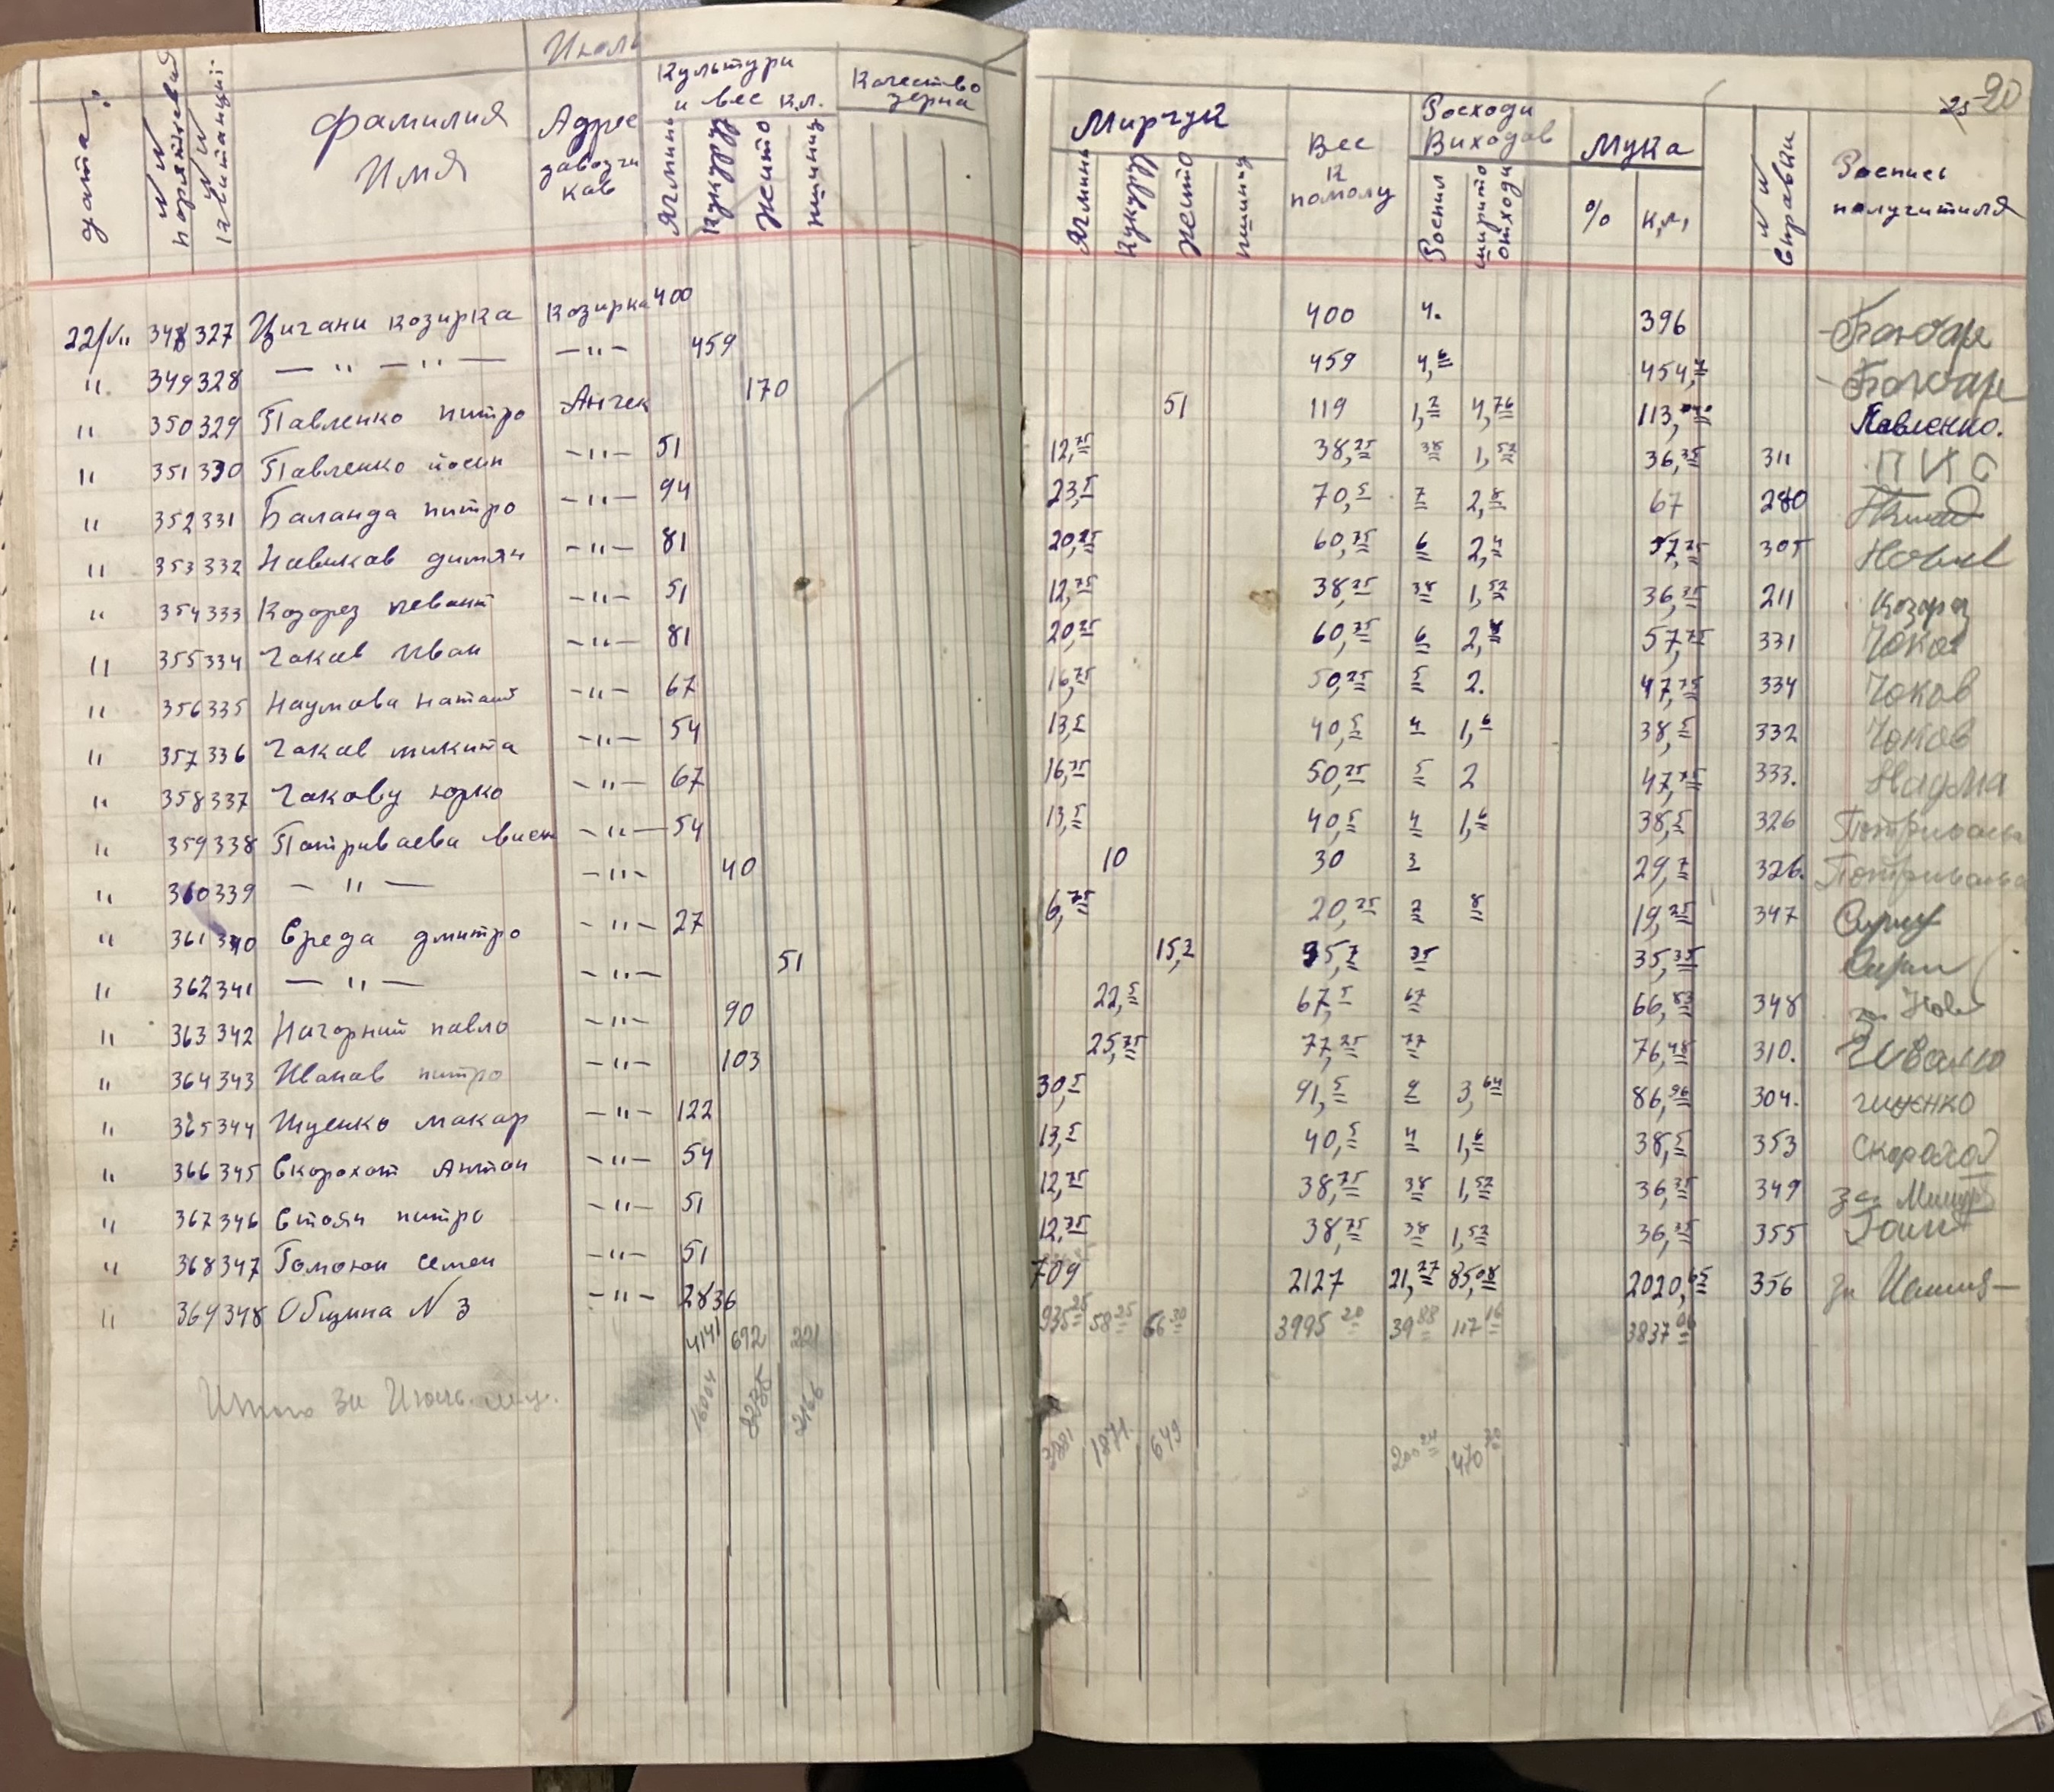 Июль
дата
N N порятковий
N N квитанциі
фамилия Имя
Адрес завозчиков
Культури и вес к.л.
Ягминь Кукурудз Жито пшениц
Качество зерна
25 20
Мирчук
Ягминь Кукурудз Жито пшениц
Вес к помолу
Росходи Виходов
Роспил отходи
Мука
% к.л,
N N справки
Роспись получитиля
22/VII 348 327 Цигани козирка Козирка 400 400 4. 396
" 349 328 — " — " — — " — 459 459 4,6 454,4
" 350 329 Павленко питро Анчек 170 51 119 1,2 4,76 113,040 Павленко.
" 351 330 Павленко йосип — " — 51 12,75 38,25 38 1,52 36,35 311 П И О
" 352 331 Баланда питро — " — 94 23,5 70,5 7 2,8 67 280
" 353 332 Новиков димян — " — 81 20,25 60,75 6 2,4 57,75 305
" 354 333 Козорез — " — 51 12,75 38,25 38 1,52 36,35 211 Козорез
" 355 334 Чаков Иван — " — 81 20,25 60,75 6 2,4 57,75 331 Чаков
" 356 335 Наумова Наташ — " — 67 16,75 50,25 5 2. 47,75 334 Чоков
" 357 336 Чаков микита — " — 54 13,5 40,5 4 1,6 38,5 332 Чоков
" 358 337 Чакову юрко — " — 67 16,75 50,25 5 2 47,75 333. Наума
" 359 338 Потриваева — " — 54 13,5 40,5 4 1,6 38,5 326
" 360 339 — " — — " — 40 10 30 3 29,7 326.
" 361 340 Середа дмитро — " — 27 6,75 20,25 2 8 19,25 347
" 362 341 — " — — " — 51 15,2 35,7 35 35,35
" 363 342 Нагорний павло — " — 90 22,5 67,5 67 66,83 348 за Нов
" 364 343 Иванов питро — " — 103 25,75 77,25 77 76,48 310.
" 365 344 Ищенко макар — " — 122 30,5 91,5 9 3,64 86,96 304.
" 366 345 Скорохот Антон — " — 54 13,5 40,5 4 1,6 38,5 353 Скороход
" 367 346 Стоян питро — " — 51 12,75 38,25 38 1,52 36,35 349 за
" 368 347 Гомонюк семен — " — 51 12,75 38,25 38 1,52 36,35 355
" 369 348 Община N 3 — " — 2836 709 2127 21,27 85,08 2020,65 356 за
4141 692 221 935 25 58 25 66 30 3995 20 39 88 117 16 3837 06
Итого за Июль м-ц. 16004 8235 2166 3881 1871 649 200 24 470 30